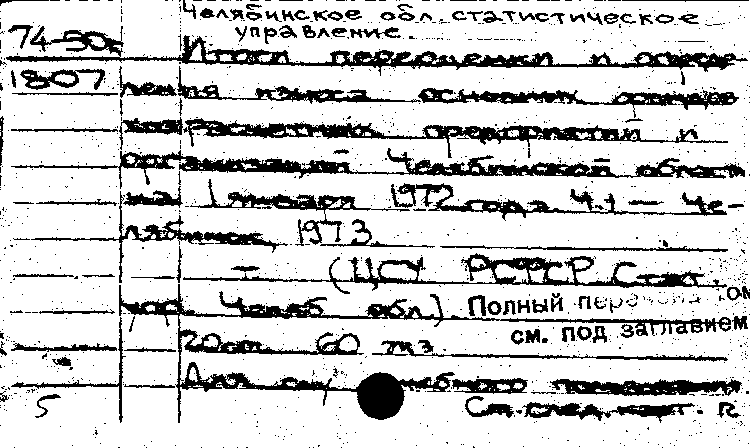 Челябинское обл. статистическое
управление.
74-50к
Итоги переоценки и опреде-
1807
ления износа основных фондов
хозрасчетных предприятий и
организаций Челябинской области
на 1 января 1972 года. Ч.1 — Че-
лябинск, 1973.
— (ЦСУ РСФСР. Стат.
упр. Челяб. обл.). Полный перечень том
см. под заглавием
20см. 60 экз.
Для служебного пользования.
5
См. след. карт.